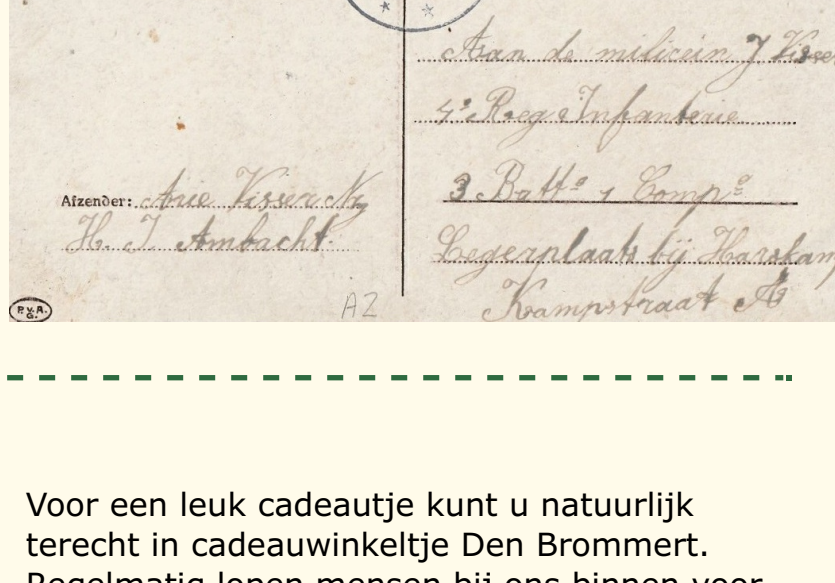 Aan de milicien J Visser
4e Reg Infanterie
3 Batt° 1 Compe
Legerplaats bij Harskamp
Kampstraat
Afzender: Arie Visser Nz
H. I Ambacht.
P.v.A.
G.
AZ
Voor een leuk cadeautje kunt u natuurlijk
terecht in cadeauwinkeltje Den Brommert.
Regelmatig lopen mensen bij ons binnen voor